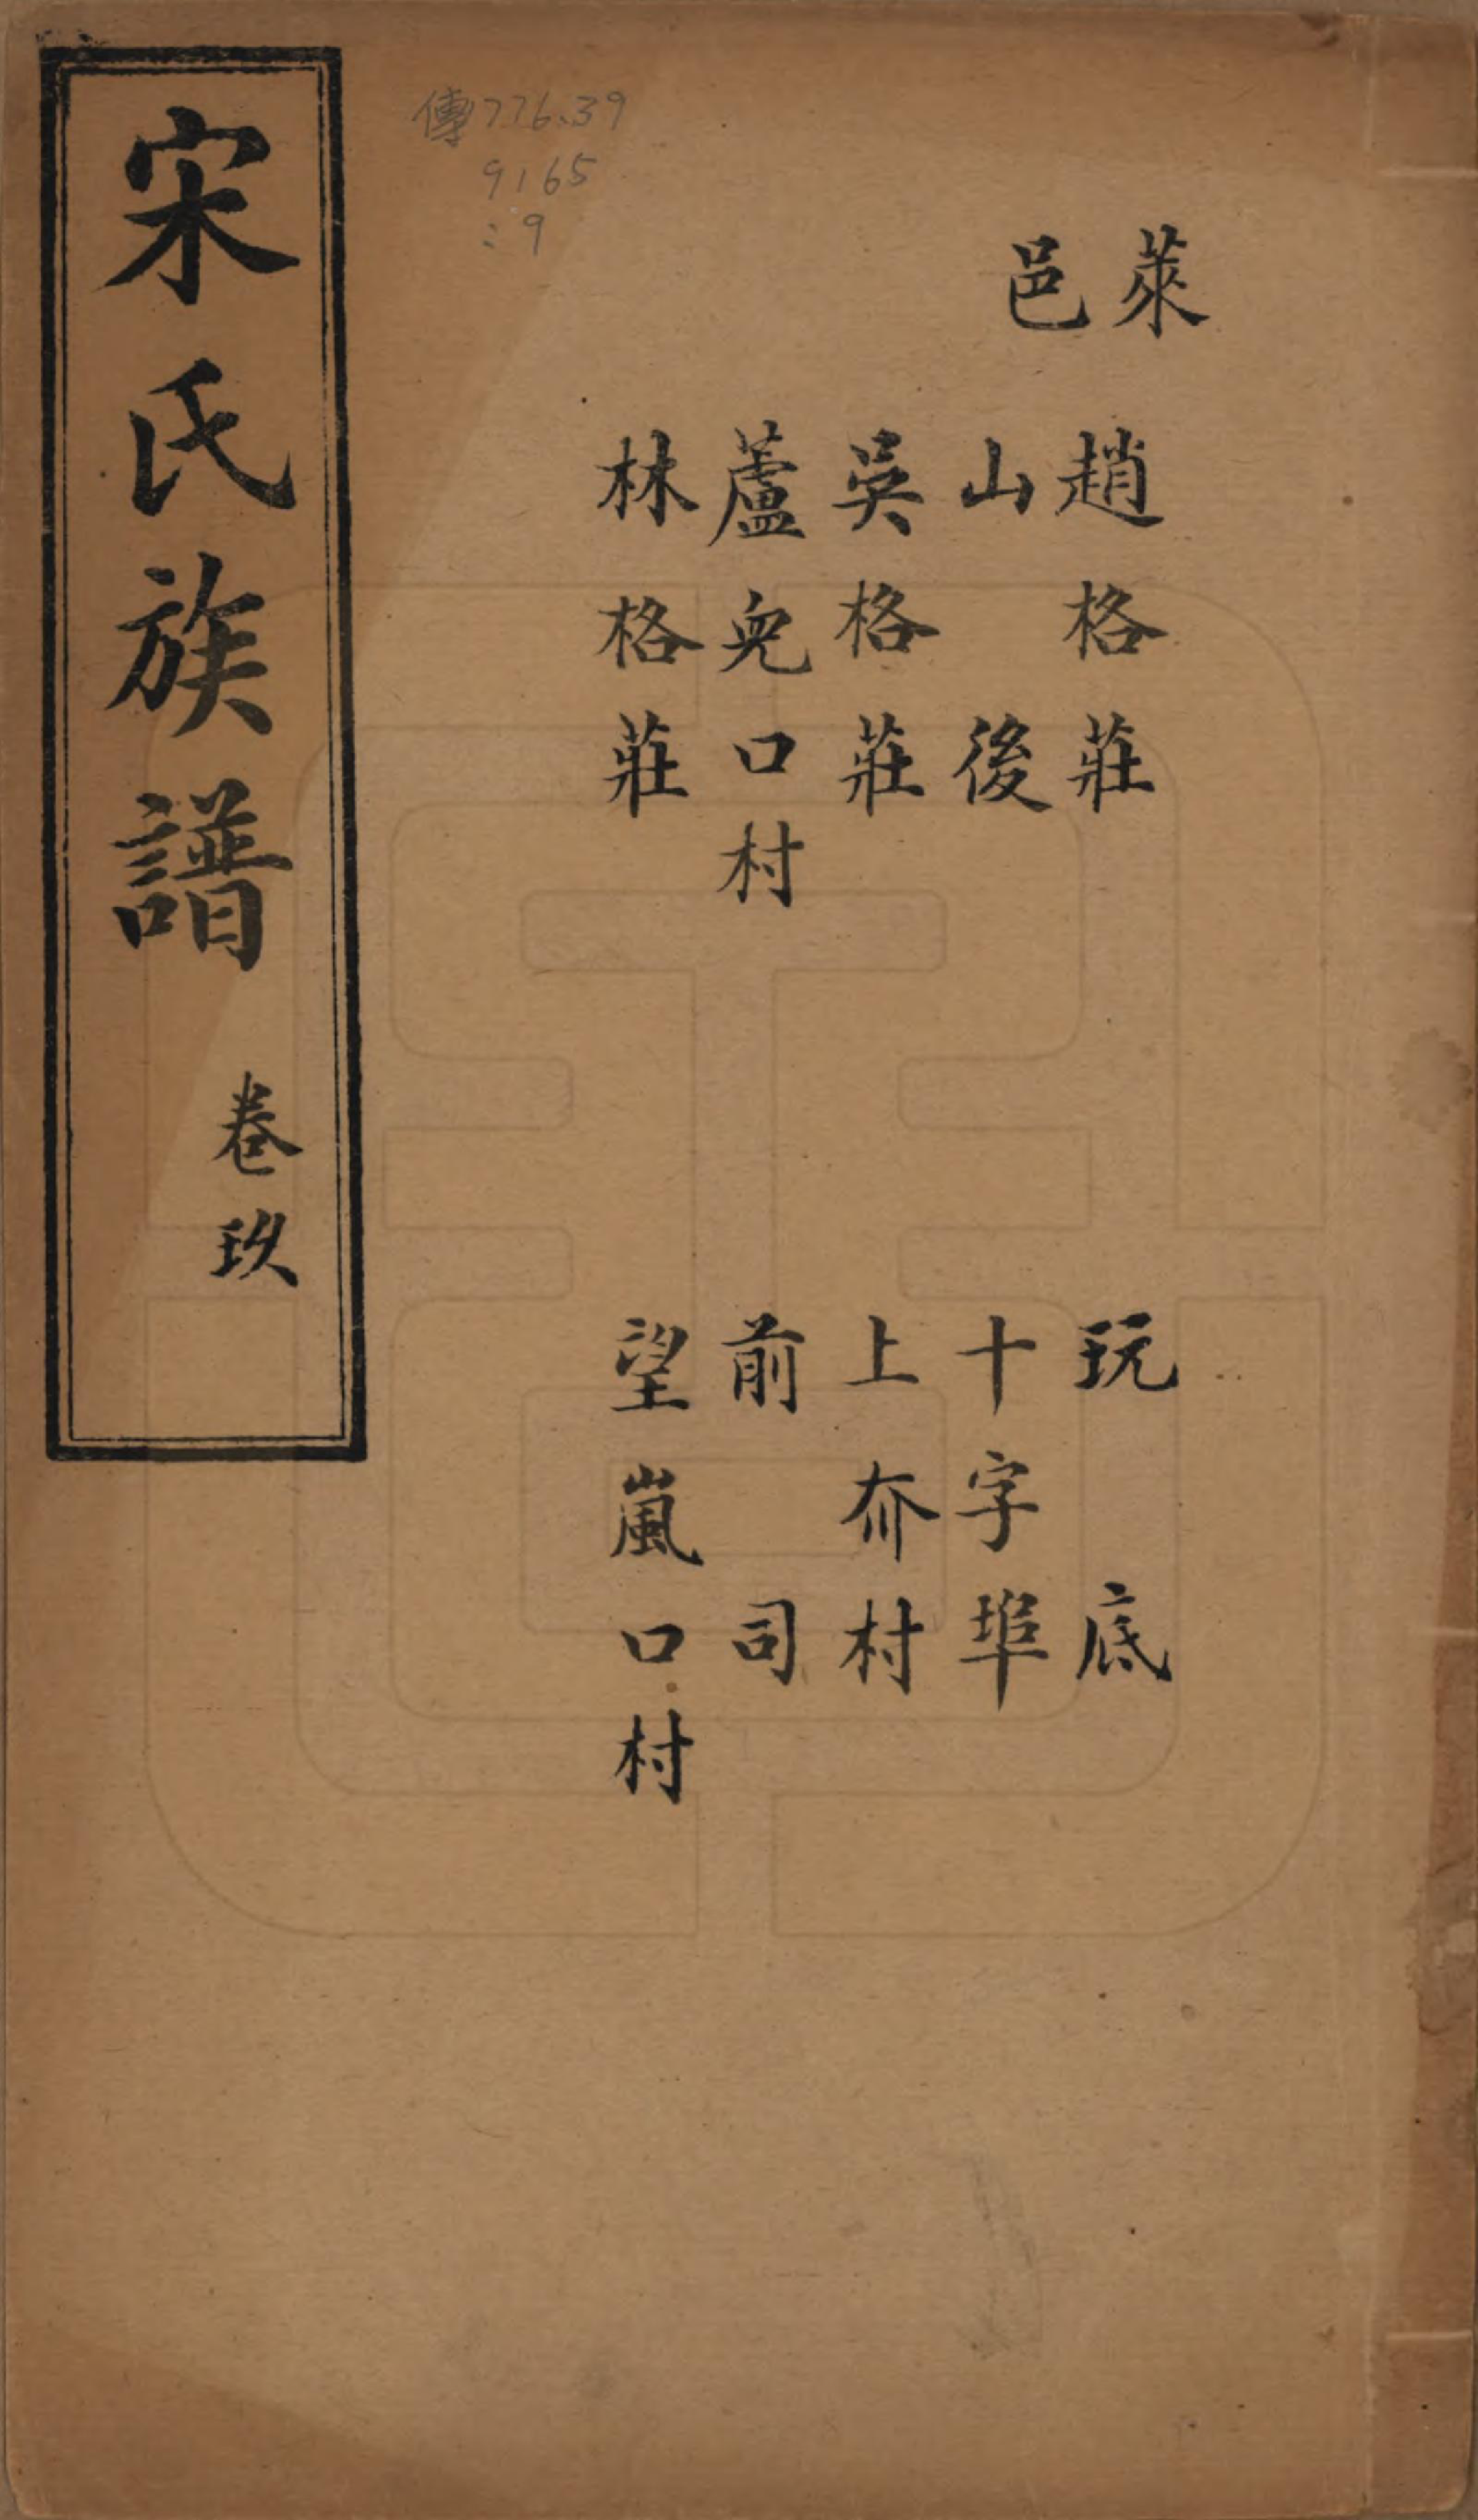 萊邑
趙格莊
山後
吳格莊
蘆兒口村
林格莊
玩底
十字埠
上夼村
前司
望嵐口村
傳776.39
9165
:9
宋氏族譜
卷玖